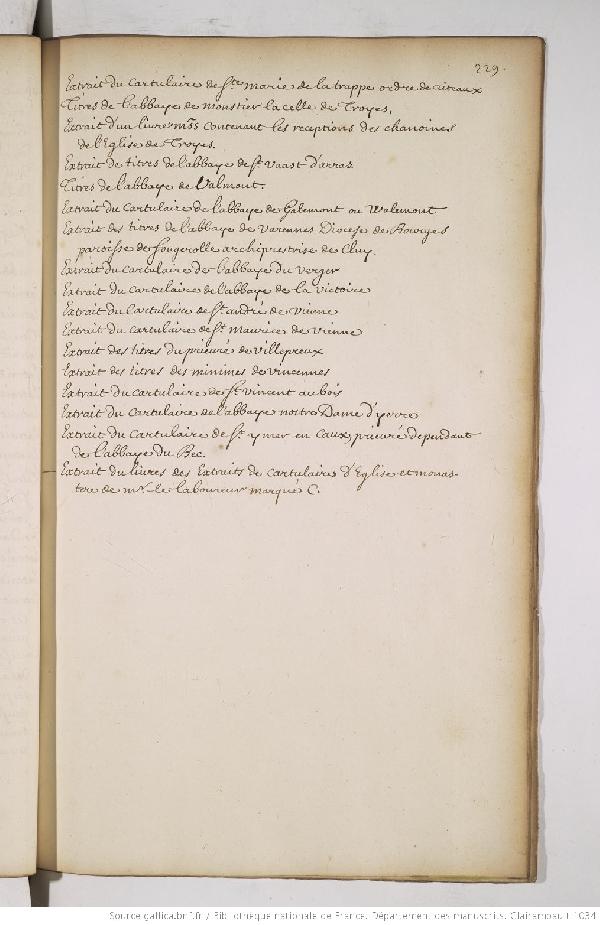 229.
Extrait du Cartulaire de Ste marie de la trappe ordre de citeaux
Titres de l'abbaye de monstier la celle de Troyes.
Extrait d'un livre mss contenant les receptions des chanoines
de l'Eglise de Troyes.
Extrait de titres de l'abbaye de St Vaast d'arras
Titres de l'abbaye de Valmont.
Extrait du Cartulaire de l'abbaye de Galemont ou Walemont
Extrait des titres de l'abbaye de Varennes Diocese de Bourges
paroisse de fougerolle archiprestrise de Cluy.
Extrait du Cartulaire de l'abbaye du verger
Extrait du Cartulaire de l'abbaye de la victoire
Extrait du Cartulaire de St andré de vienne
Extrait du Cartulaire de St maurice de vienne
Extrait des titres du prieuré de villepreux
Extrait des titres des minimes de vincennes
Extrait du Cartulaire de St vincent au bois
Extrait du Cartulaire de l'abbaye nostre Dame d'yerre
Extrait du Cartulaire de St ymer en Caux, prieuré dependant
de l'abbaye du Bec.
Extrait du livres des Extraits de Cartulaires d'Eglise et monas-
tere de mr. le laboureur marqué C.
Source gallica.bnf.fr / Bibliothèque nationale de France. Département des manuscrits. Clairambault 1034